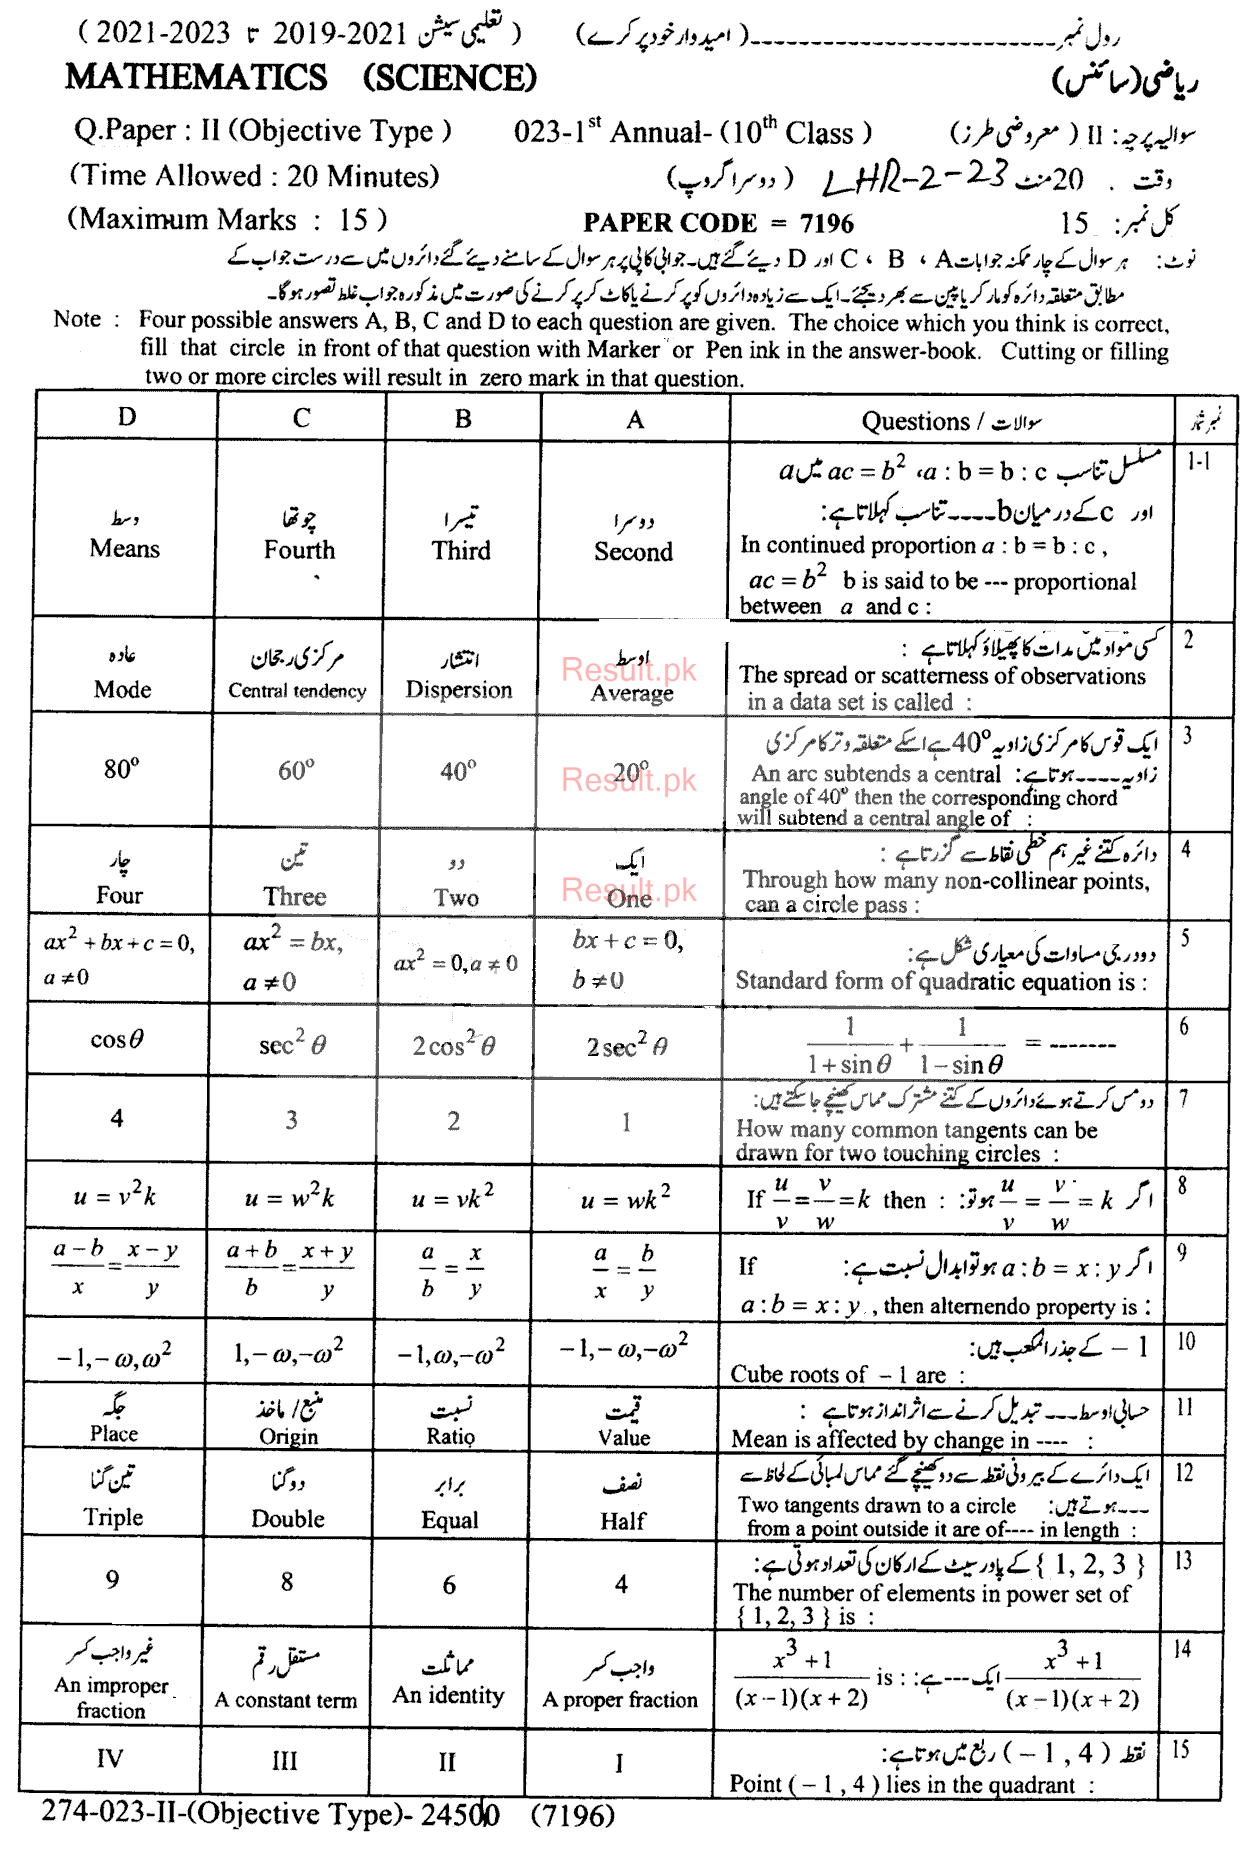 رول نمبر ــــــــــــــــــــ (امیدوار خود پر کرے) ( تعلیمی سیشن 2021-2019 تا 2023-2021 )
MATHEMATICS (SCIENCE) ریاضی (سائنس)
Q.Paper : II (Objective Type ) 023-1st Annual- (10th Class ) سوالیہ پرچہ : II ( معروضی طرز )
(Time Allowed : 20 Minutes) LHR-2-23 ( دوسرا گروپ ) وقت . 20 منٹ
(Maximum Marks : 15 ) PAPER CODE = 7196 کل نمبر : 15
نوٹ : ہر سوال کے چار ممکنہ جوابات A ، B ، C اور D دیئے گئے ہیں۔ جوابی کاپی پر ہر سوال کے سامنے دیئے گئے دائروں میں سے درست جواب کے
مطابق متعلقہ دائرہ کو مارکر یا پین سے بھر دیجئے۔ ایک سے زیادہ دائروں کو پر کرنے یا کاٹ کر پر کرنے کی صورت میں مذکورہ جواب غلط تصور ہوگا۔
Note : Four possible answers A, B, C and D to each question are given. The choice which you think is correct,
fill that circle in front of that question with Marker or Pen ink in the answer-book. Cutting or filling
two or more circles will result in zero mark in that question.
D C B A Questions / سوالات نمبر شمار
1-1 مسلسل تناسب a : b = b : c ، ac = b² میں a
اور c کے درمیان b ---- تناسب کہلاتا ہے :
In continued proportion a : b = b : c ,
ac = b² b is said to be --- proportional
between a and c :
وسط چوتھا تیسرا دوسرا
Means Fourth Third Second
2 کسی مواد میں مدات کا پھیلاؤ کہلاتا ہے :
The spread or scatterness of observations
in a data set is called :
عادہ مرکزی رجحان انتشار اوسط
Mode Central tendency Dispersion Average
Result.pk
3 ایک قوس کا مرکزی زاویہ 40º ہے اسکے متعلقہ وتر کا مرکزی
زاویہ ----- ہوتا ہے : An arc subtends a central
angle of 40º then the corresponding chord
will subtend a central angle of :
80º 60º 40º 20º
Result.pk
4 دائرہ کتنے غیر ہم خطی نقاط سے گزرتا ہے :
Through how many non-collinear points,
can a circle pass :
چار تین دو ایک
Four Three Two One
Result.pk
5 دو درجی مساوات کی معیاری شکل ہے :
Standard form of quadratic equation is :
ax² + bx + c = 0, ax² = bx, ax² = 0, a ≠ 0 bx + c = 0,
a ≠ 0 a ≠ 0 b ≠ 0
6 1/(1 + sin θ) + 1/(1 − sin θ) = -------
cos θ sec² θ 2 cos² θ 2 sec² θ
7 دو مس کرتے ہوئے دائروں کے کتنے مشترک مماس کھینچے جا سکتے ہیں :
How many common tangents can be
drawn for two touching circles :
4 3 2 1
8 اگر u/v = v/w = k ہو تو : If u/v = v/w = k then :
u = v²k u = w²k u = vk² u = wk²
9 اگر a : b = x : y ہو تو ابدال نسبت ہے : If
a : b = x : y , then alternendo property is :
(a − b)/x = (x − y)/y (a + b)/b = (x + y)/y a/b = x/y a/x = b/y
10 − 1 کے جذر المکعب ہیں :
Cube roots of − 1 are :
−1, − ω, ω² 1, − ω, −ω² −1, ω, −ω² −1, − ω, −ω²
11 حسابی اوسط --- تبدیل کرنے سے اثر انداز ہوتا ہے :
Mean is affected by change in ---- :
جگہ منبع / ماخذ نسبت قیمت
Place Origin Ratio Value
12 ایک دائرے کے بیرونی نقطہ سے دو کھینچے گئے مماس لمبائی کے لحاظ سے
--- ہوتے ہیں : Two tangents drawn to a circle
from a point outside it are of---- in length :
تین گنا دو گنا برابر نصف
Triple Double Equal Half
13 { 1, 2, 3 } کے پاور سیٹ کے ارکان کی تعداد ہوتی ہے :
The number of elements in power set of
{ 1, 2, 3 } is :
9 8 6 4
14 (x³ + 1)/((x − 1)(x + 2)) ایک --- ہے : (x³ + 1)/((x − 1)(x + 2)) is :
غیر واجب کسر مستقل رقم مماثلت واجب کسر
An improper fraction A constant term An identity A proper fraction
15 نقطہ ( − 1 , 4 ) ربع میں ہوتا ہے :
Point ( − 1 , 4 ) lies in the quadrant :
IV III II I
274-023-II-(Objective Type)- 24500 (7196)